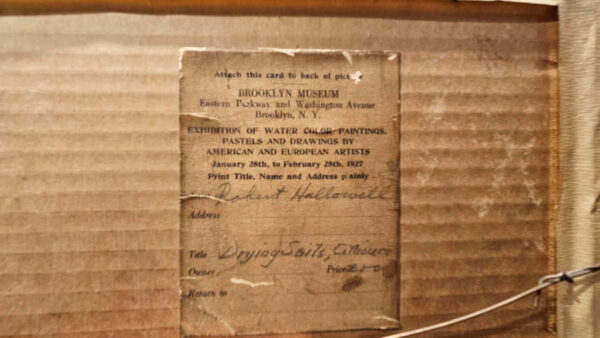 Attach this card to back of picture
BROOKLYN MUSEUM
Eastern Parkway and Washington Avenue
Brooklyn, N. Y.
EXHIBITION OF WATER COLOR PAINTINGS,
PASTELS AND DRAWINGS BY
AMERICAN AND EUROPEAN ARTISTS
January 28th, to February 28th, 1927
Print Title, Name and Address plainly
Robert Hallowell
Address
Title Drying Sails,
Owner
Price
Return to